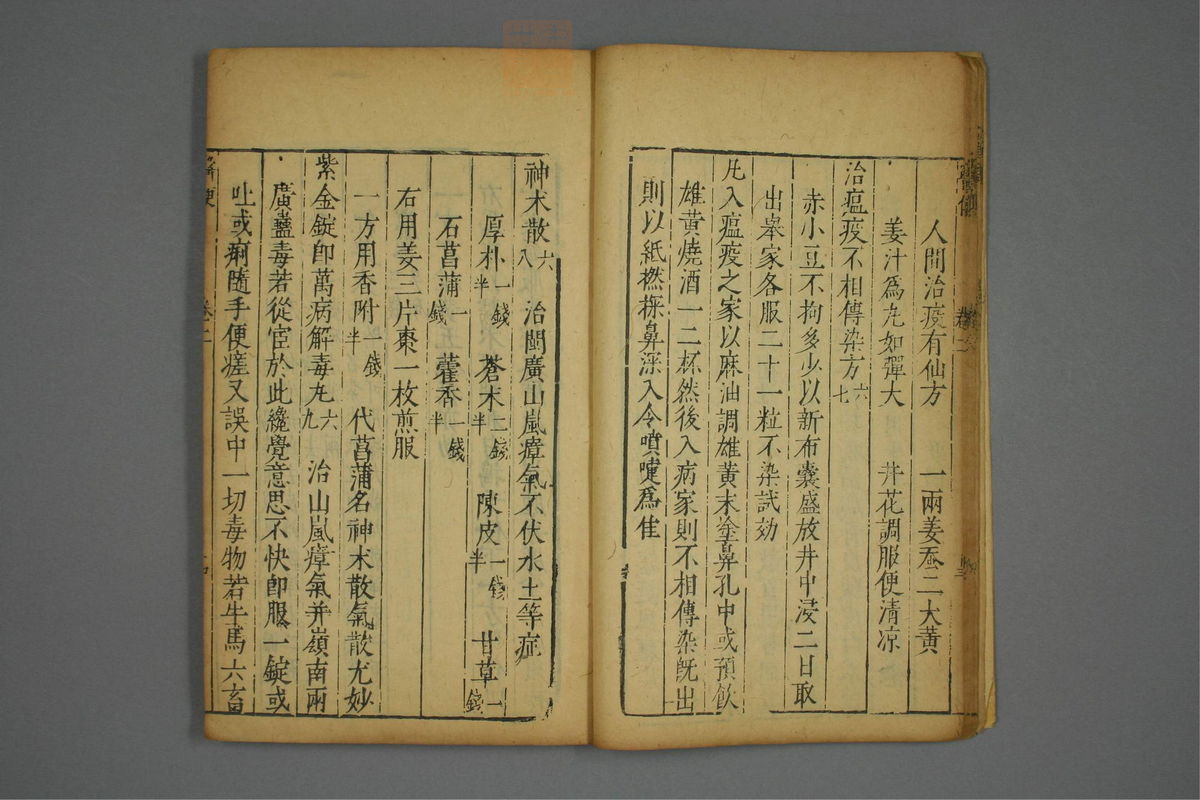 人間治疫有仙方　一兩姜蚕二大黄
姜汁為丸如彈大　井花調服便清凉
治瘟疫不相傳染方六七
赤小豆不拘多少以新布囊盛放井中浸二日取
出舉家各服二十一粒不染試効
凡入瘟疫之家以麻油調雄黄末塗鼻孔中或預飲
雄黄燒酒一二杯然後入病家則不相傳染旣出
則以紙撚探鼻深入令噴嚏為佳
神术散六八　治閩廣山嵐瘴氣不伏水土等症
厚朴一錢半　蒼术二錢半　陳皮一錢半　甘草一錢
石菖蒲一錢　藿香一錢半
右用姜三片棗一枚煎服
一方用香附一錢半　代菖蒲名神术散氣散尤妙
紫金錠卽萬病解毒丸六九　治山嵐瘴氣并嶺南兩
廣蠱毒若從宦於此纔覺意思不快卽服一錠或
吐或痢隨手便瘥又誤中一切毒物若牛馬六畜
卷二